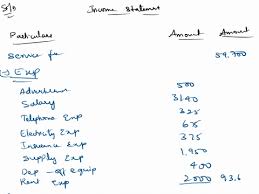 Income Statement
Particulars Amount Amount
Service fee 59,700
Exp
Advertisem 500
Salary 3140
Telephone Exp 325
Electricity Exp 675
Insurance Exp 375
Supply Exp 1,950
Dep - off equip 400
Rent Exp 2000